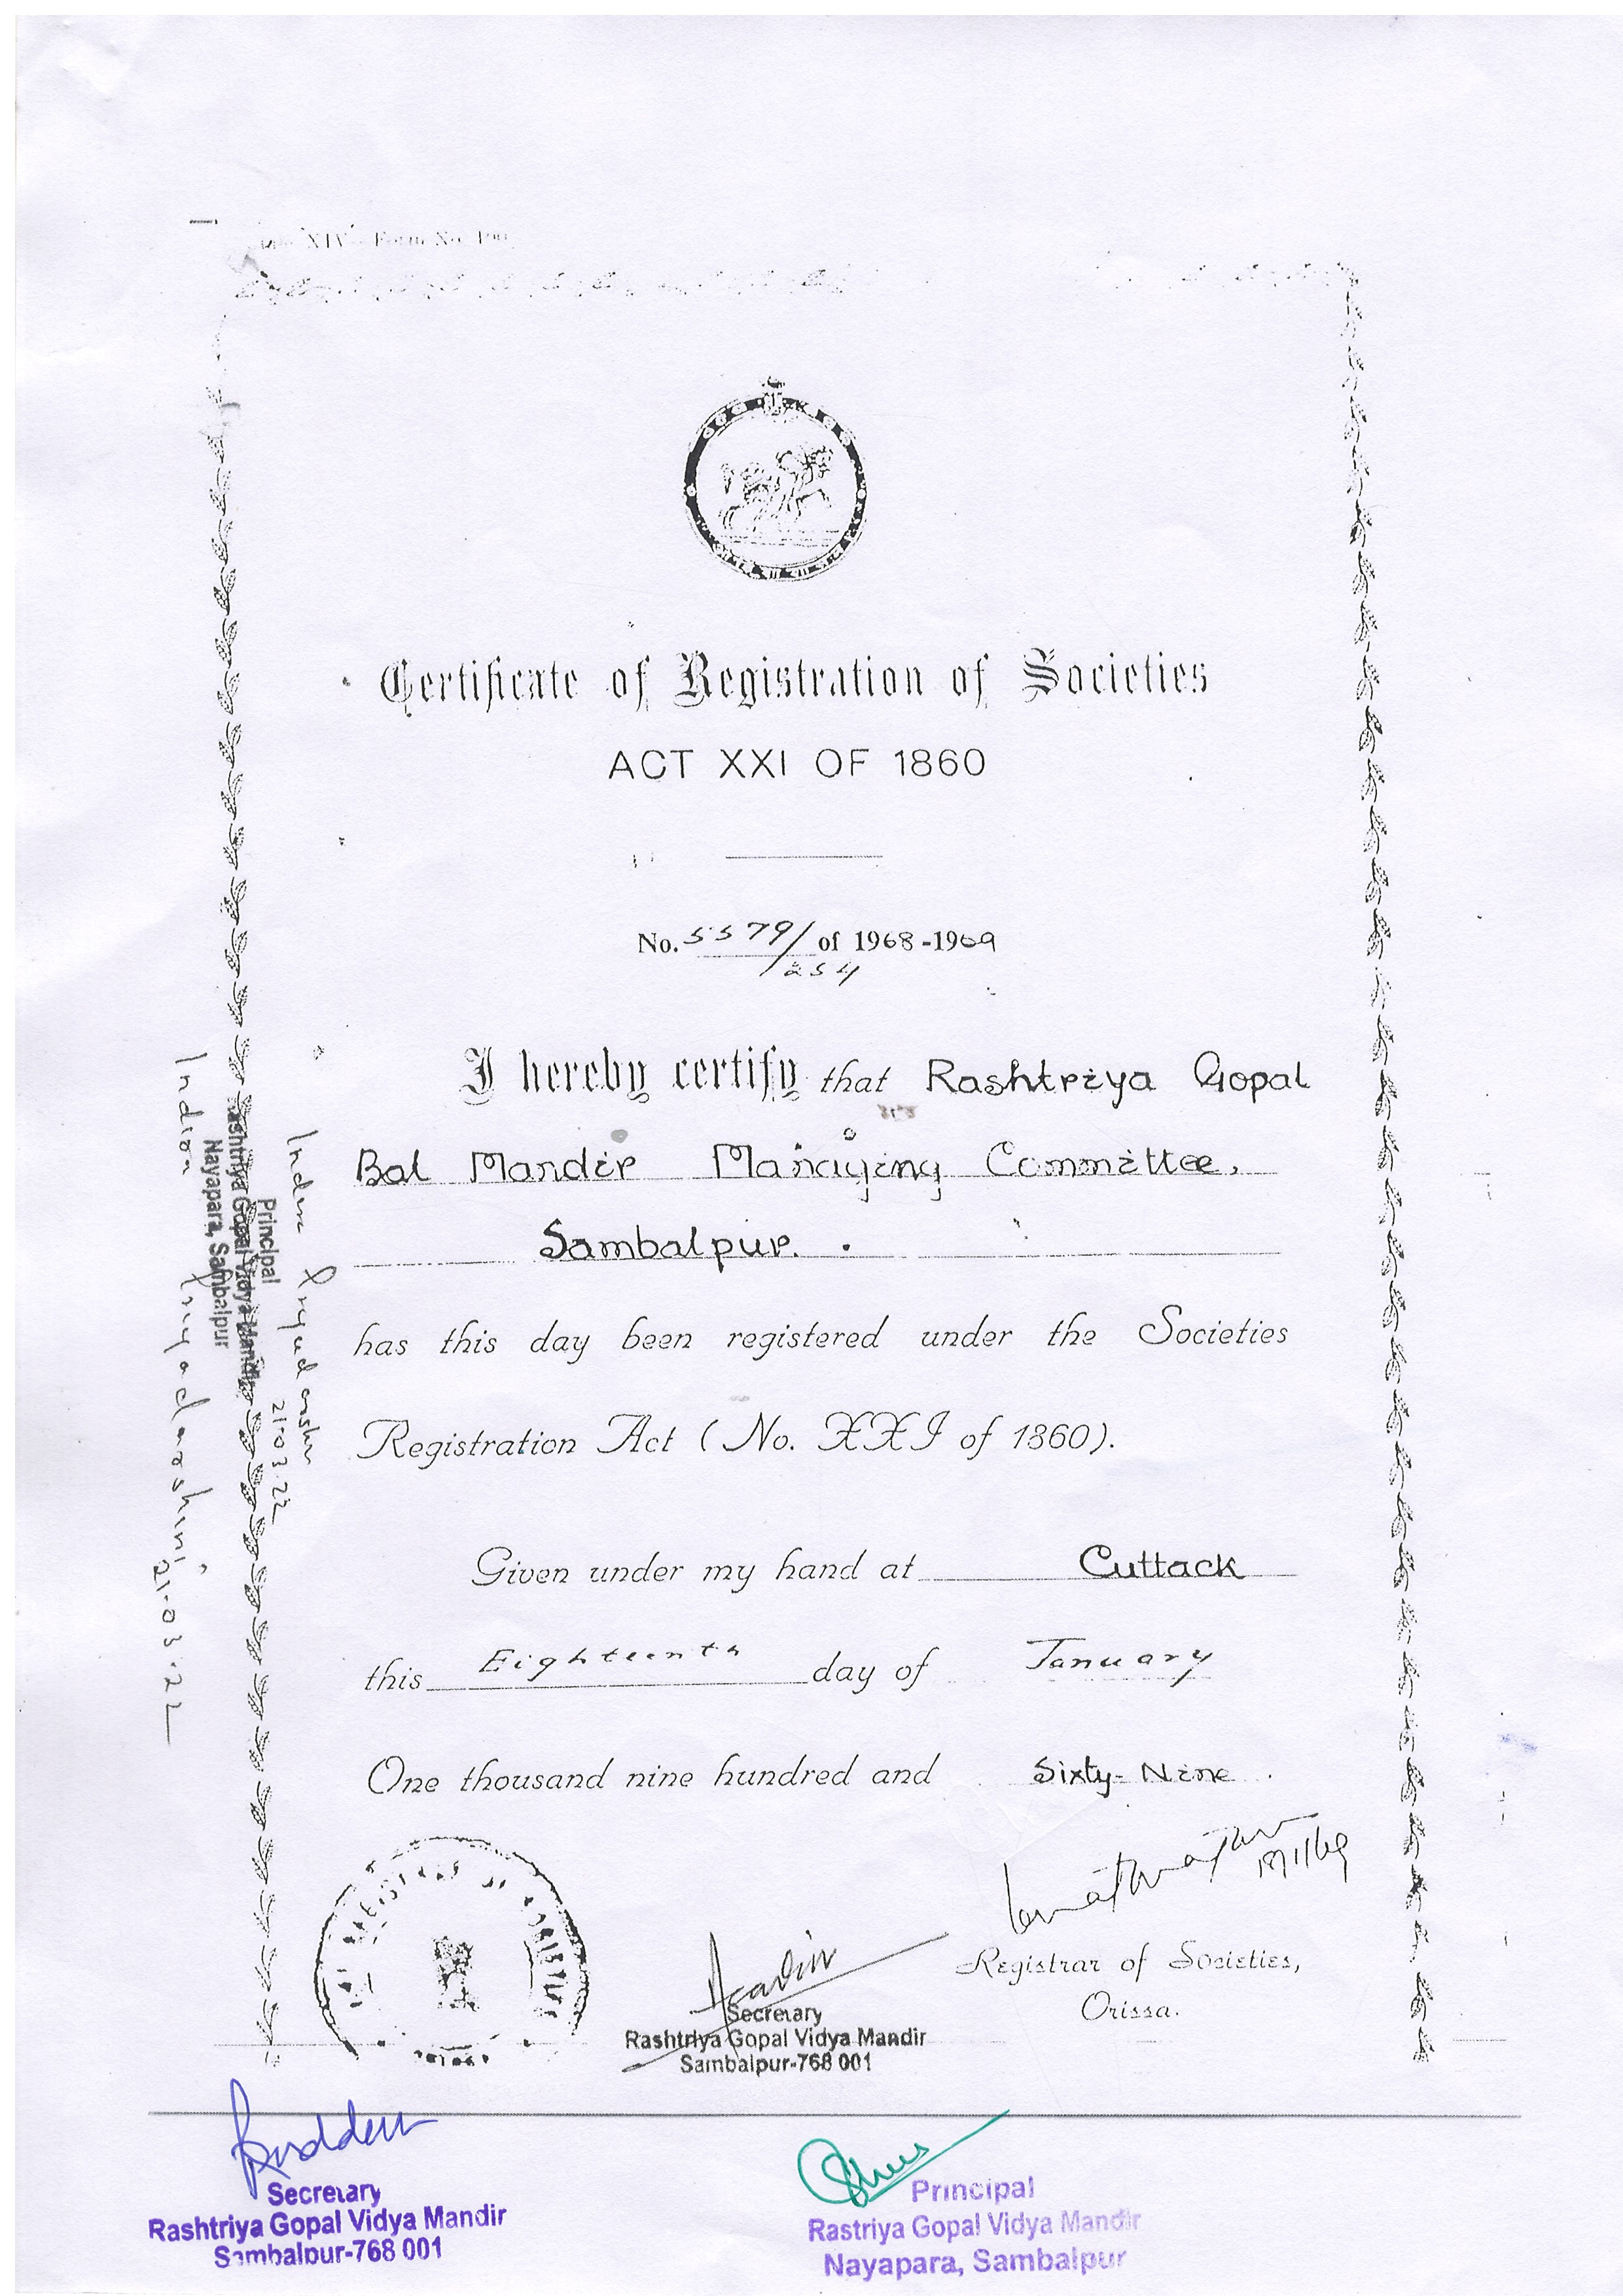 XIV - Form No. 
Certificate of Registration of Societies
ACT XXI OF 1860
No. 5579/254 of 1968-1969
I hereby certify that Rashtriya Gopal
Bal Mandir Managing Committee,
Sambalpur.
has this day been registered under the Societies
Registration Act (No. XXI of 1860).
Given under my hand at Cuttack
this Eighteenth day of January
One thousand nine hundred and Sixty-Nine.
18/1/69
Registrar of Societies,
Orissa.
Secretary
Rashtriya Gopal Vidya Mandir
Sambalpur-768 001
Principal
Rashtriya Gopal Vidya Mandir
Nayapara, Sambalpur
21.03.22
21.03.22
Secretary
Rashtriya Gopal Vidya Mandir
Sambalpur-768 001
Principal
Rastriya Gopal Vidya Mandir
Nayapara, Sambalpur